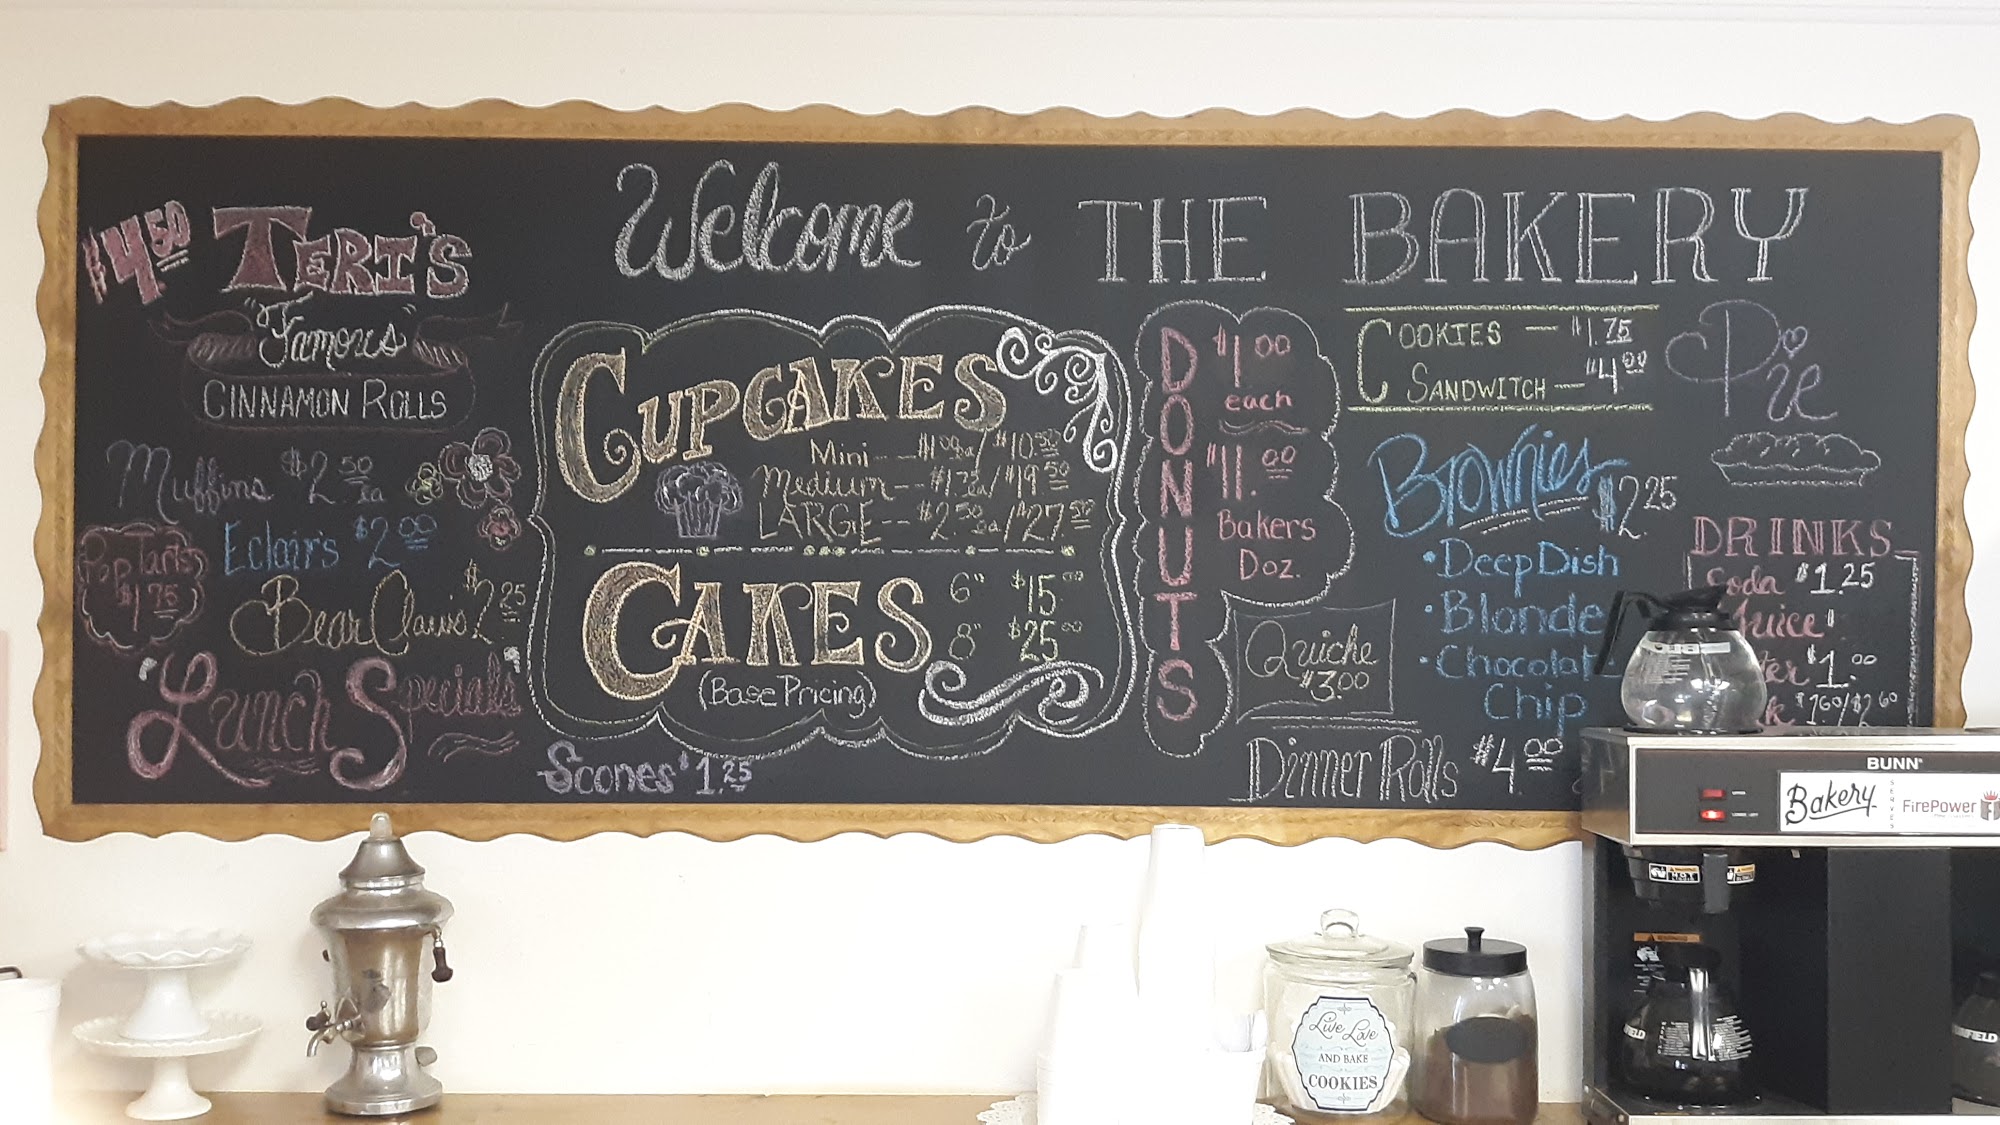 Welcome to THE BAKERY
$4.50 TERI'S
"Famous"
CINNAMON ROLLS
Muffins $2.50 ea
Pop Tarts
$1.75
Eclair's $2.00
Bear Claw's $2.25
"Lunch Specials"
CUPCAKES
Mini -- $1.00 ea / $10.50
Medium -- $1.75 ea / $19.50
LARGE -- $2.50 ea / $27.50
CAKES
6" $15.00
8" $25.00
(Base Pricing)
Scones $1.25
DONUTS
$1.00
each
$11.00
Bakers
Doz.
Quiche
$3.00
Dinner Rolls $4.00
COOKIES — $1.75
SANDWITCH — $4.00
Brownies $2.25
• Deep Dish
• Blonde
• Chocolat
Chip
Pie
DRINKS
Soda $1.25
Juice
$1.00
$1.60/$2.60
BUNN
Bakery
SERVES
FirePower
Live Love
AND BAKE
COOKIES